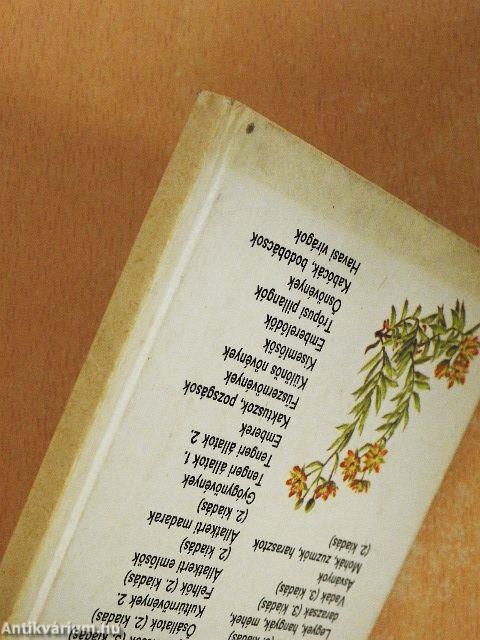 (2. kiadás)
Legyek, hangyák, méhek,
darazsak (3. kiadás)
Vadak (3. kiadás)
Ásványok
Mohák, zuzmók, harasztok
(2. kiadás)
Ősállatok (2. kiadás)
Kultúrnövények 2.
Felhők (2. kiadás)
Állatkerti emlősök
(2. kiadás)
Állatkerti madarak
(2. kiadás)
Gyógynövények
Tengeri állatok 1.
Tengeri állatok 2.
Emberek
Kaktuszok, pozsgások
Fűszernövények
Különös növények
Kisemlősök
Emberelődök
Trópusi pillangók
Ősnövények
Kabócák, bodobácsok
Havasi virágok
Antikvárium.hu